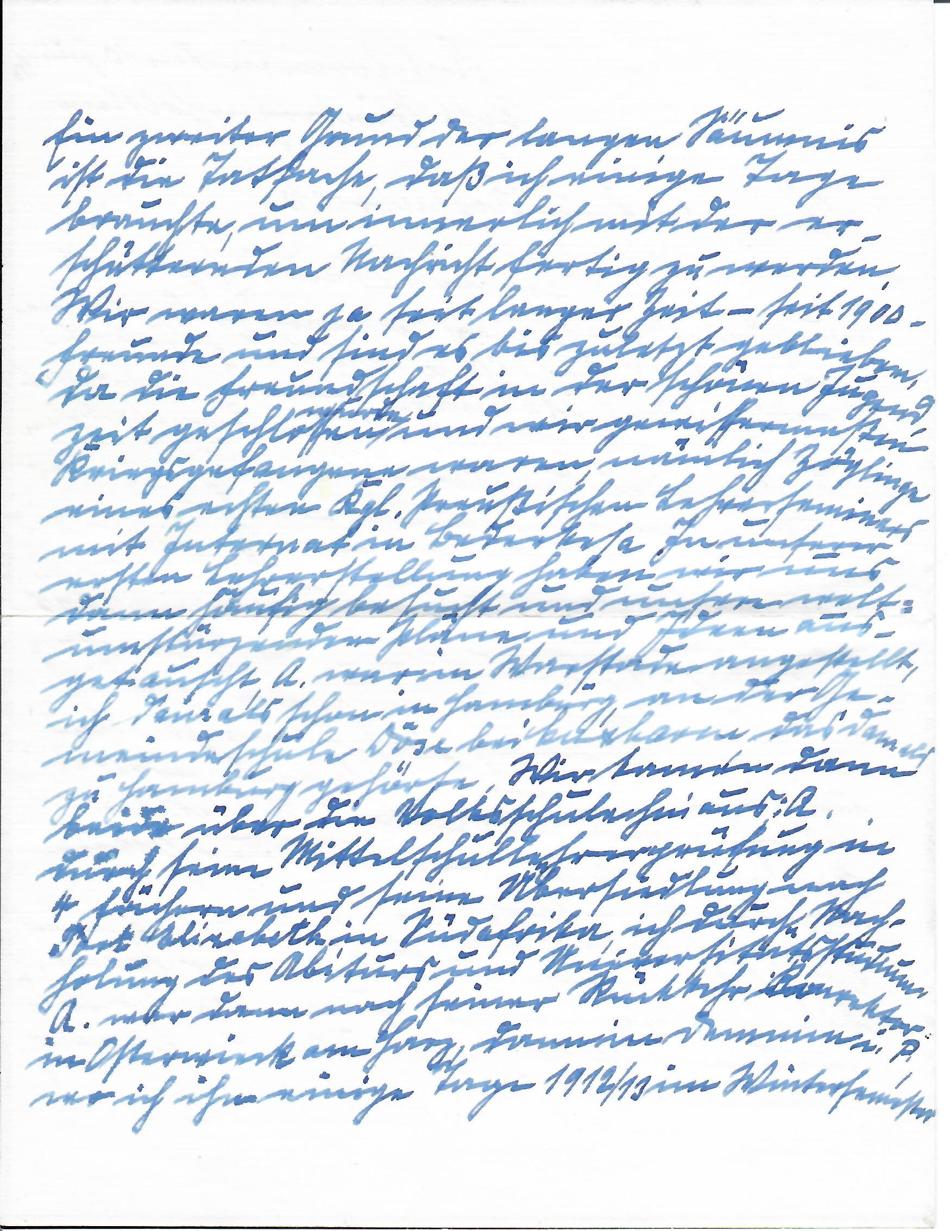 Ein zweiter Grund der langen Säumnis
ist die Tatsache, daß ich einige Tage
brauchte, um innerlich mit der er-
schütternden Nachricht fertig zu werden.
Wir waren ja seit langer Zeit – seit 1900 –
Freunde und sind es bis zuletzt geblieben,
da die Freundschaft in der schönen Jugend-
zeit geschlossen wurde und wir gewissermaßen
Kriegsgefangene waren, nämlich Zöglinge
eines echten Kgl. Preußischen Lehrerseminars
mit Internat in Bederkesa. In unserer
ersten Lehrerstellung haben wir uns
dann häufig besucht und unsere welt-
umstürzenden Pläne und Ideen aus-
getauscht. A. war in Warstade angestellt,
ich damals schon in Hamburg an der Ge-
meindeschule Döse bei Cuxhaven, das damals
zu Hamburg gehörte. Wir kamen dann
beide über die Volksschule hinaus: A.
durch seine Mittelschullehrerprüfung in
4 Fächern und seine Übersiedlung nach
Port Elizabeth in Südafrika, ich durch Nach-
holung des Abiturs und Universitätsstudium.
A. war dann nach seiner Rückkehr Konrektor
in Osterwieck am Harz, dann in Demmin i. P.,
wo ich ihn einige Tage 1912/13 im Wintersemester